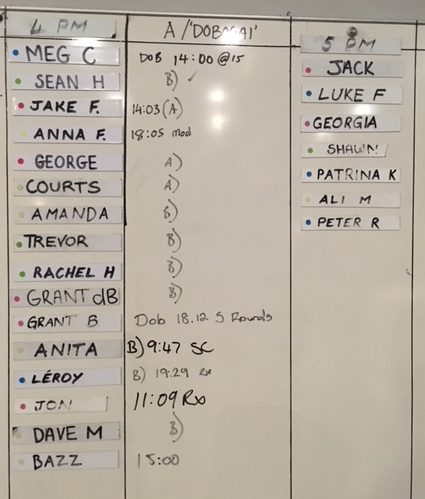 4 PM A/'DOBAGAI' 5 PM
MEG C DOB 14:00 @15
SEAN H B) ✓
JAKE F. 14:03 (A)
ANNA F. 18:05 mod
GEORGE A)
COURTS A)
AMANDA B)
TREVOR B)
RACHEL H B)
GRANT dB B)
GRANT B Dob 18.12 5 Rounds
ANITA B) 9:47 SC
LÉROY B) 19:29 Rx
JON 11:09 Rx
DAVE M B)
BAZZ 15:00
JACK
LUKE F
GEORGIA
SHAWN
PATRINA K
ALI M
PETER R